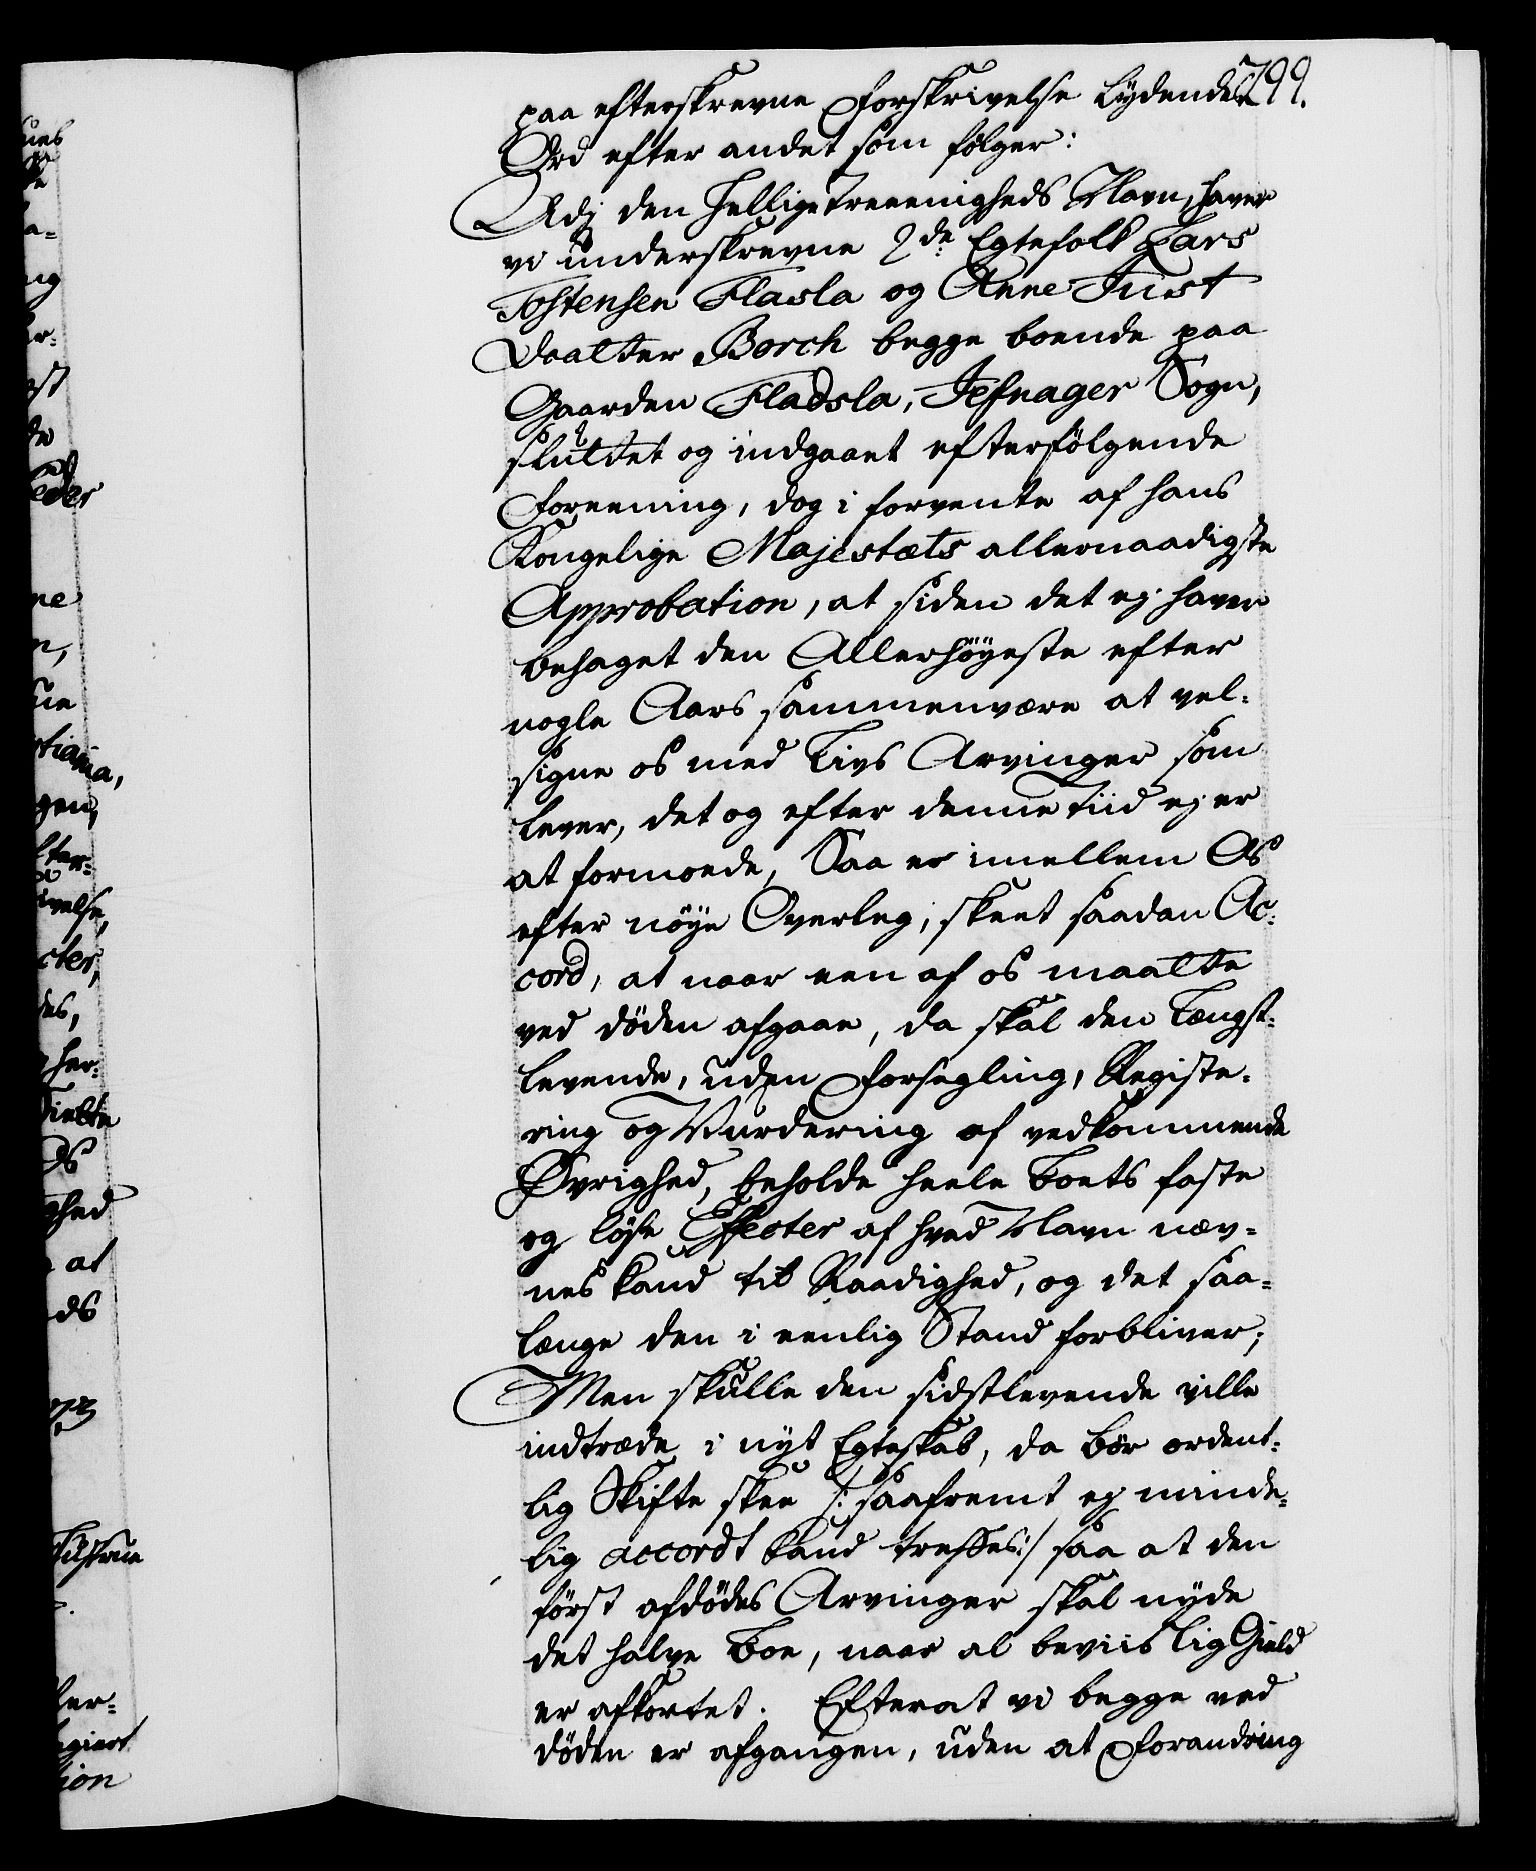 799.
paa efterskrevne Forskrivelse lÿdendes
Ord efter andet som følger:
Udj den Hellige Treeenigheds Navn, haver
vi underskrevne 2de Egtefolk Lars
Tostensen Flasla og Anne Just
Daatter Borch begge boende paa
Gaarden Fladsla, Jefnager Sogn,
sluttet og indgaaet efterfølgende
Foreening, dog i forvente af Hans
Kongelige Majestæts allernaadigste
Approbation, at siden det ej haver
behaget den Allerhøÿeste efter
nogle Aars sammenvære at vel-
signe os med Livs Arvinger som
lever, det og efter denne Tiid ej er
at formoede, Saa er imellem Os
efter nöÿe Overleg, skeet saadan Ac-
cord, at naar een af os maatte
ved döden afgaae, da skal den Længst-
levende, uden Forsegling, Registe-
ring og Vurdering af vedkommende
Øvrighed, beholde heele Boets faste
og löse Effecter af hvad Navn næv-
nes kand til Raadighed, og det saa-
længe den i eenlig Stand forbliver;
Men skulle den sidstlevende ville
indtræde i nÿt Egteskab, da bör ordent-
lig Skifte skee /: saafremt ej minde-
lig accordt kand treffes :/ saa at den
först afdödes Arvinger skal nÿde
det halve Boe, naar al beviislig Gield
er afkortet. Efterat vi begge ved
döden er afgangen, uden at Forandring